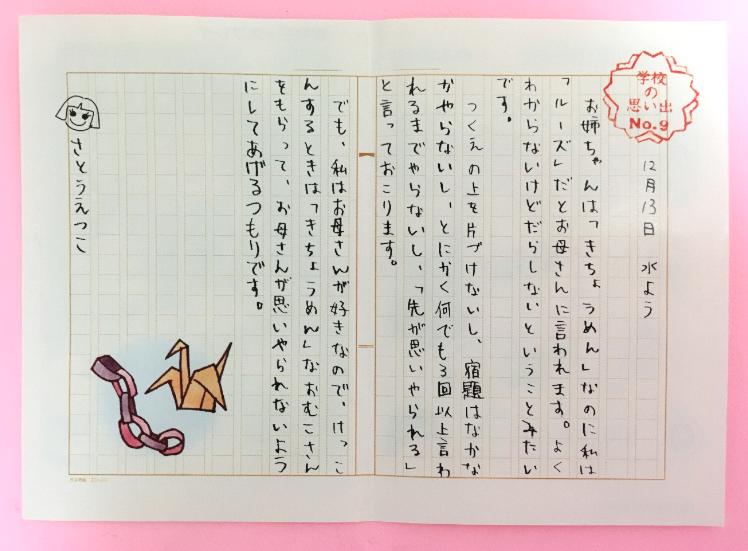 学校
の
思い出
No.9
12月13日 水よう
お姉ちゃんは「きちょうめん」なのに私は
「ルーズ」だとお母さんに言われます。よく
わからないけどだらしないということみたい
です。
つくえの上を片づけないし、宿題はなかな
かやらないし、とにかく何でも3回以上言わ
れるまでやらないし、「先が思いやられる」
と言っておこります。
でも、私はお母さんが好きなので、けっこ
んするときは「きちょうめん」なおむこさん
をもらって、お母さんが思いやられないよう
にしてあげるつもりです。
さとうえつこ